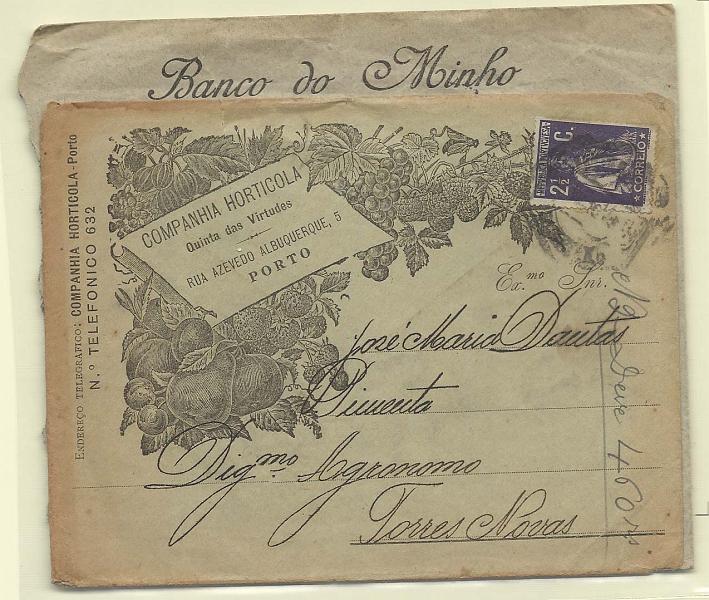 Banco do Minho
COMPANHIA HORTICOLA
Quinta das Virtudes
RUA AZEVEDO ALBUQUERQUE, 5
PORTO
ENDEREÇO TELEGRAFICO: COMPANHIA HORTICOLA-Porto
N.º TELEFONICO 632
2½ C.
CORREIO
Ex.mo Snr.
José Maria Dantas
Pimenta
Dig.mo Agronomo
Torres Novas
Deve 460 rs